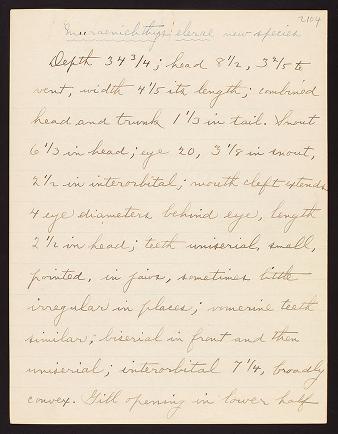 2104
Muraenichthys elerae new species
Depth 34 3/4; head 8 1/2, 3 2/5 to
vent, width 4 1/5 its length; combined
head and trunk 1 1/3 in tail. Snout
6 1/3 in head; eye 20, 3 1/8 in snout,
2 1/2 in interorbital; mouth cleft extends
4 eye diameters behind eye, length
2 1/2 in head; teeth uniserial, small,
pointed, in jaws, sometimes little
irregular in places; vomerine teeth
similar; biserial in front and then
uniserial; interorbital 7 1/4, broadly
convex. Gill opening in lower half